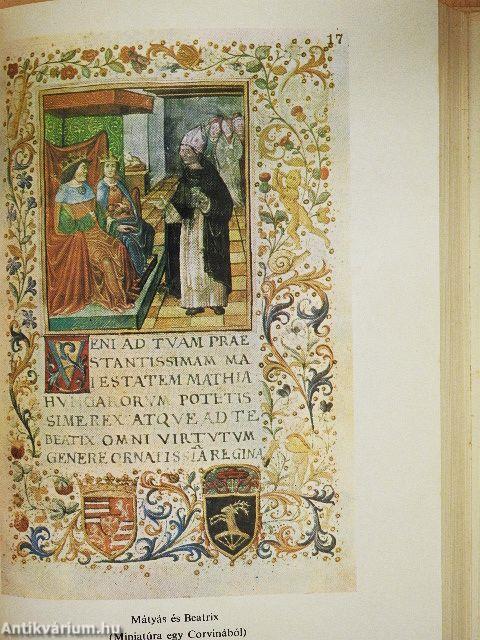 17
VENI AD TVAM PRAE
STANTISSIMAM MA
IESTATEM MATHIA
HVNGARORVM POTETIS
SIME REX ATQVE AD TE
BEATIX OMNI VIRTVTVM
GENERE ORNATISSIA REGINA
Mátyás és Beatrix
(Miniatúra egy Corvinából)
Antikvárium.hu